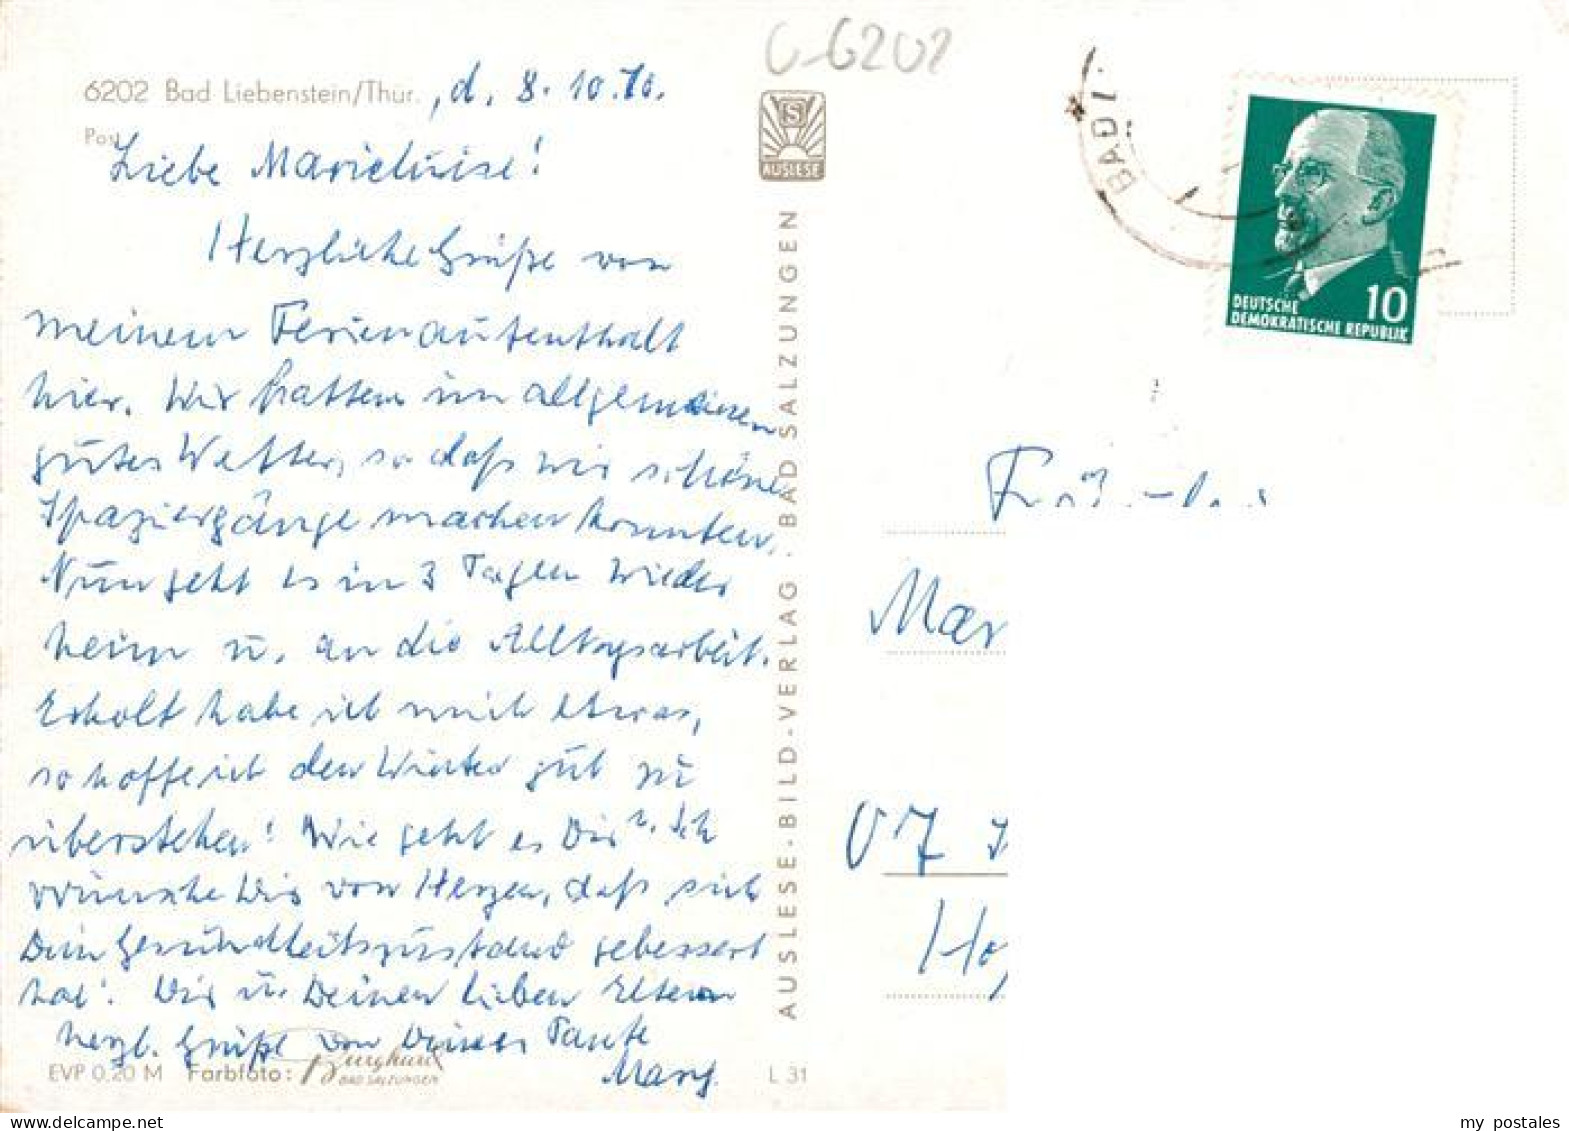 6202 Bad Liebenstein/Thür. , d. 8. 10. 70.
Post
Liebe Marieluise!
Herzliche Grüße von
meinem Ferienaufenthalt
hier. Wir hatten im allgemeinen
gutes Wetter, so daß wir schöne
Spaziergänge machen konnten.
Nun geht es in 3 Tagen wieder
heim u. an die Alltagsarbeit.
Erholt habe ich mich etwas,
so hoffe ich den Winter gut zu
überstehen! Wie geht es Dir? Ich
wünsche Dir von Herzen, daß sich
Dein Gesundheitszustand gebessert
hat. Dir u. Deinen lieben Eltern
herzl. Grüße von Deiner Tante
Marg.
EVP 0,20 M Farbfoto: Burghard
BAD SALZUNGEN
L 31
AUSLESE-BILD-VERLAG · BAD SALZUNGEN
S
AUSLESE
6202
BAD L
DEUTSCHE
DEMOKRATISCHE REPUBLIK
10
Mar
my postales